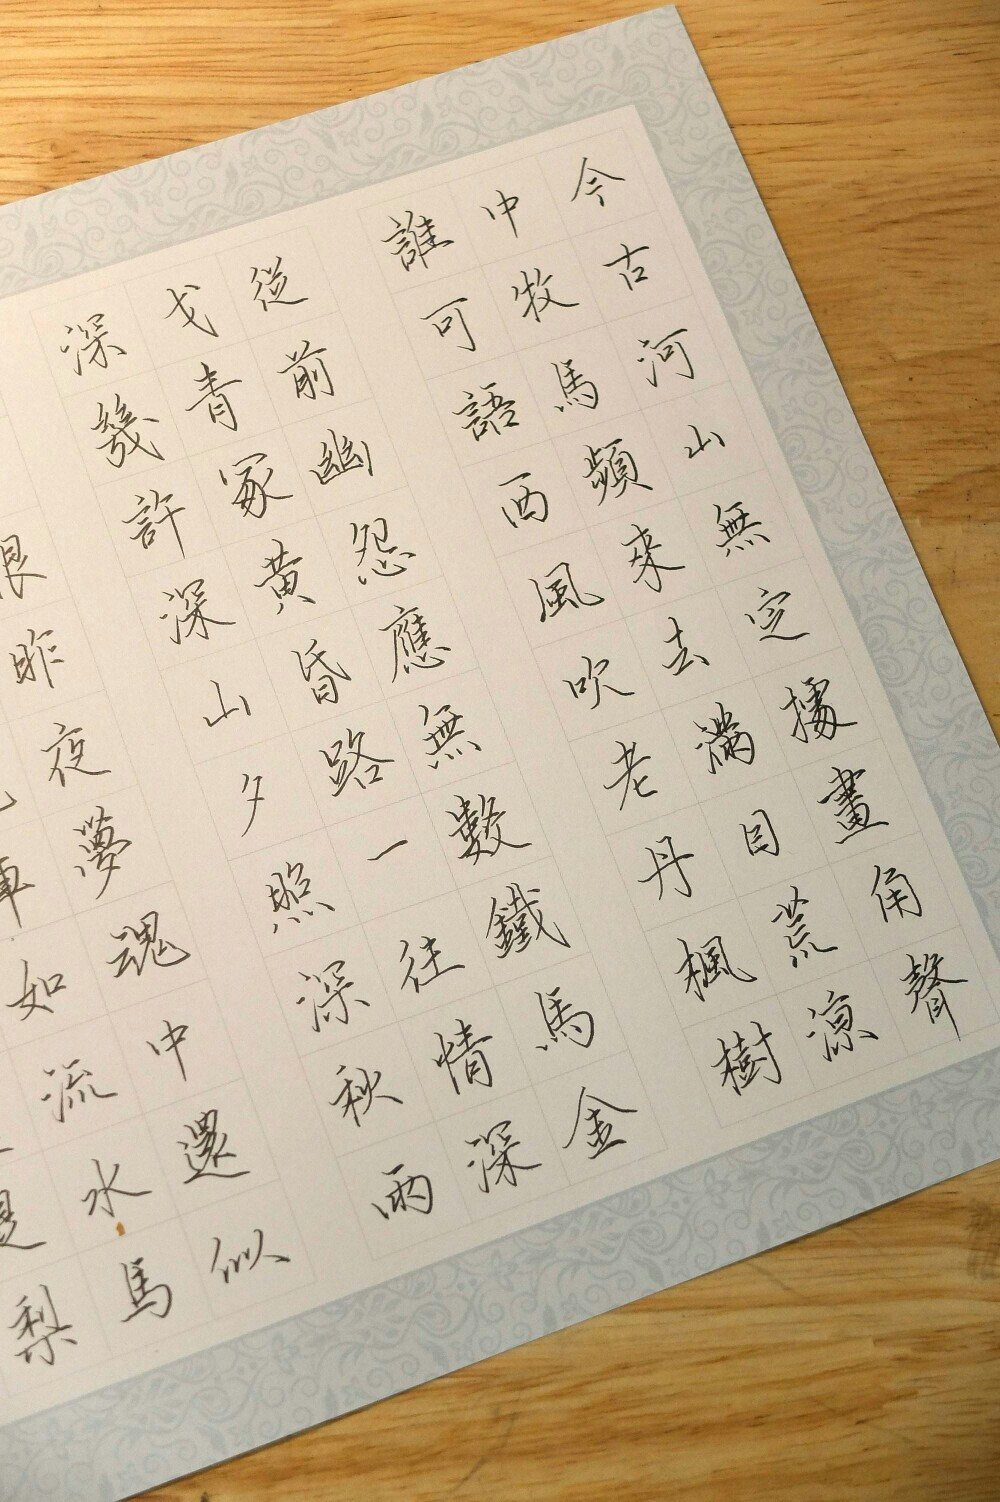 今古河山無定據畫角聲
中牧馬頻來去滿目荒涼
誰可語西風吹老丹楓樹
從前幽怨應無數鐵馬金
戈青冢黃昏路一往情深
深幾許深山夕照深秋雨
昨夜夢魂中還似
恨
如流水馬
梨